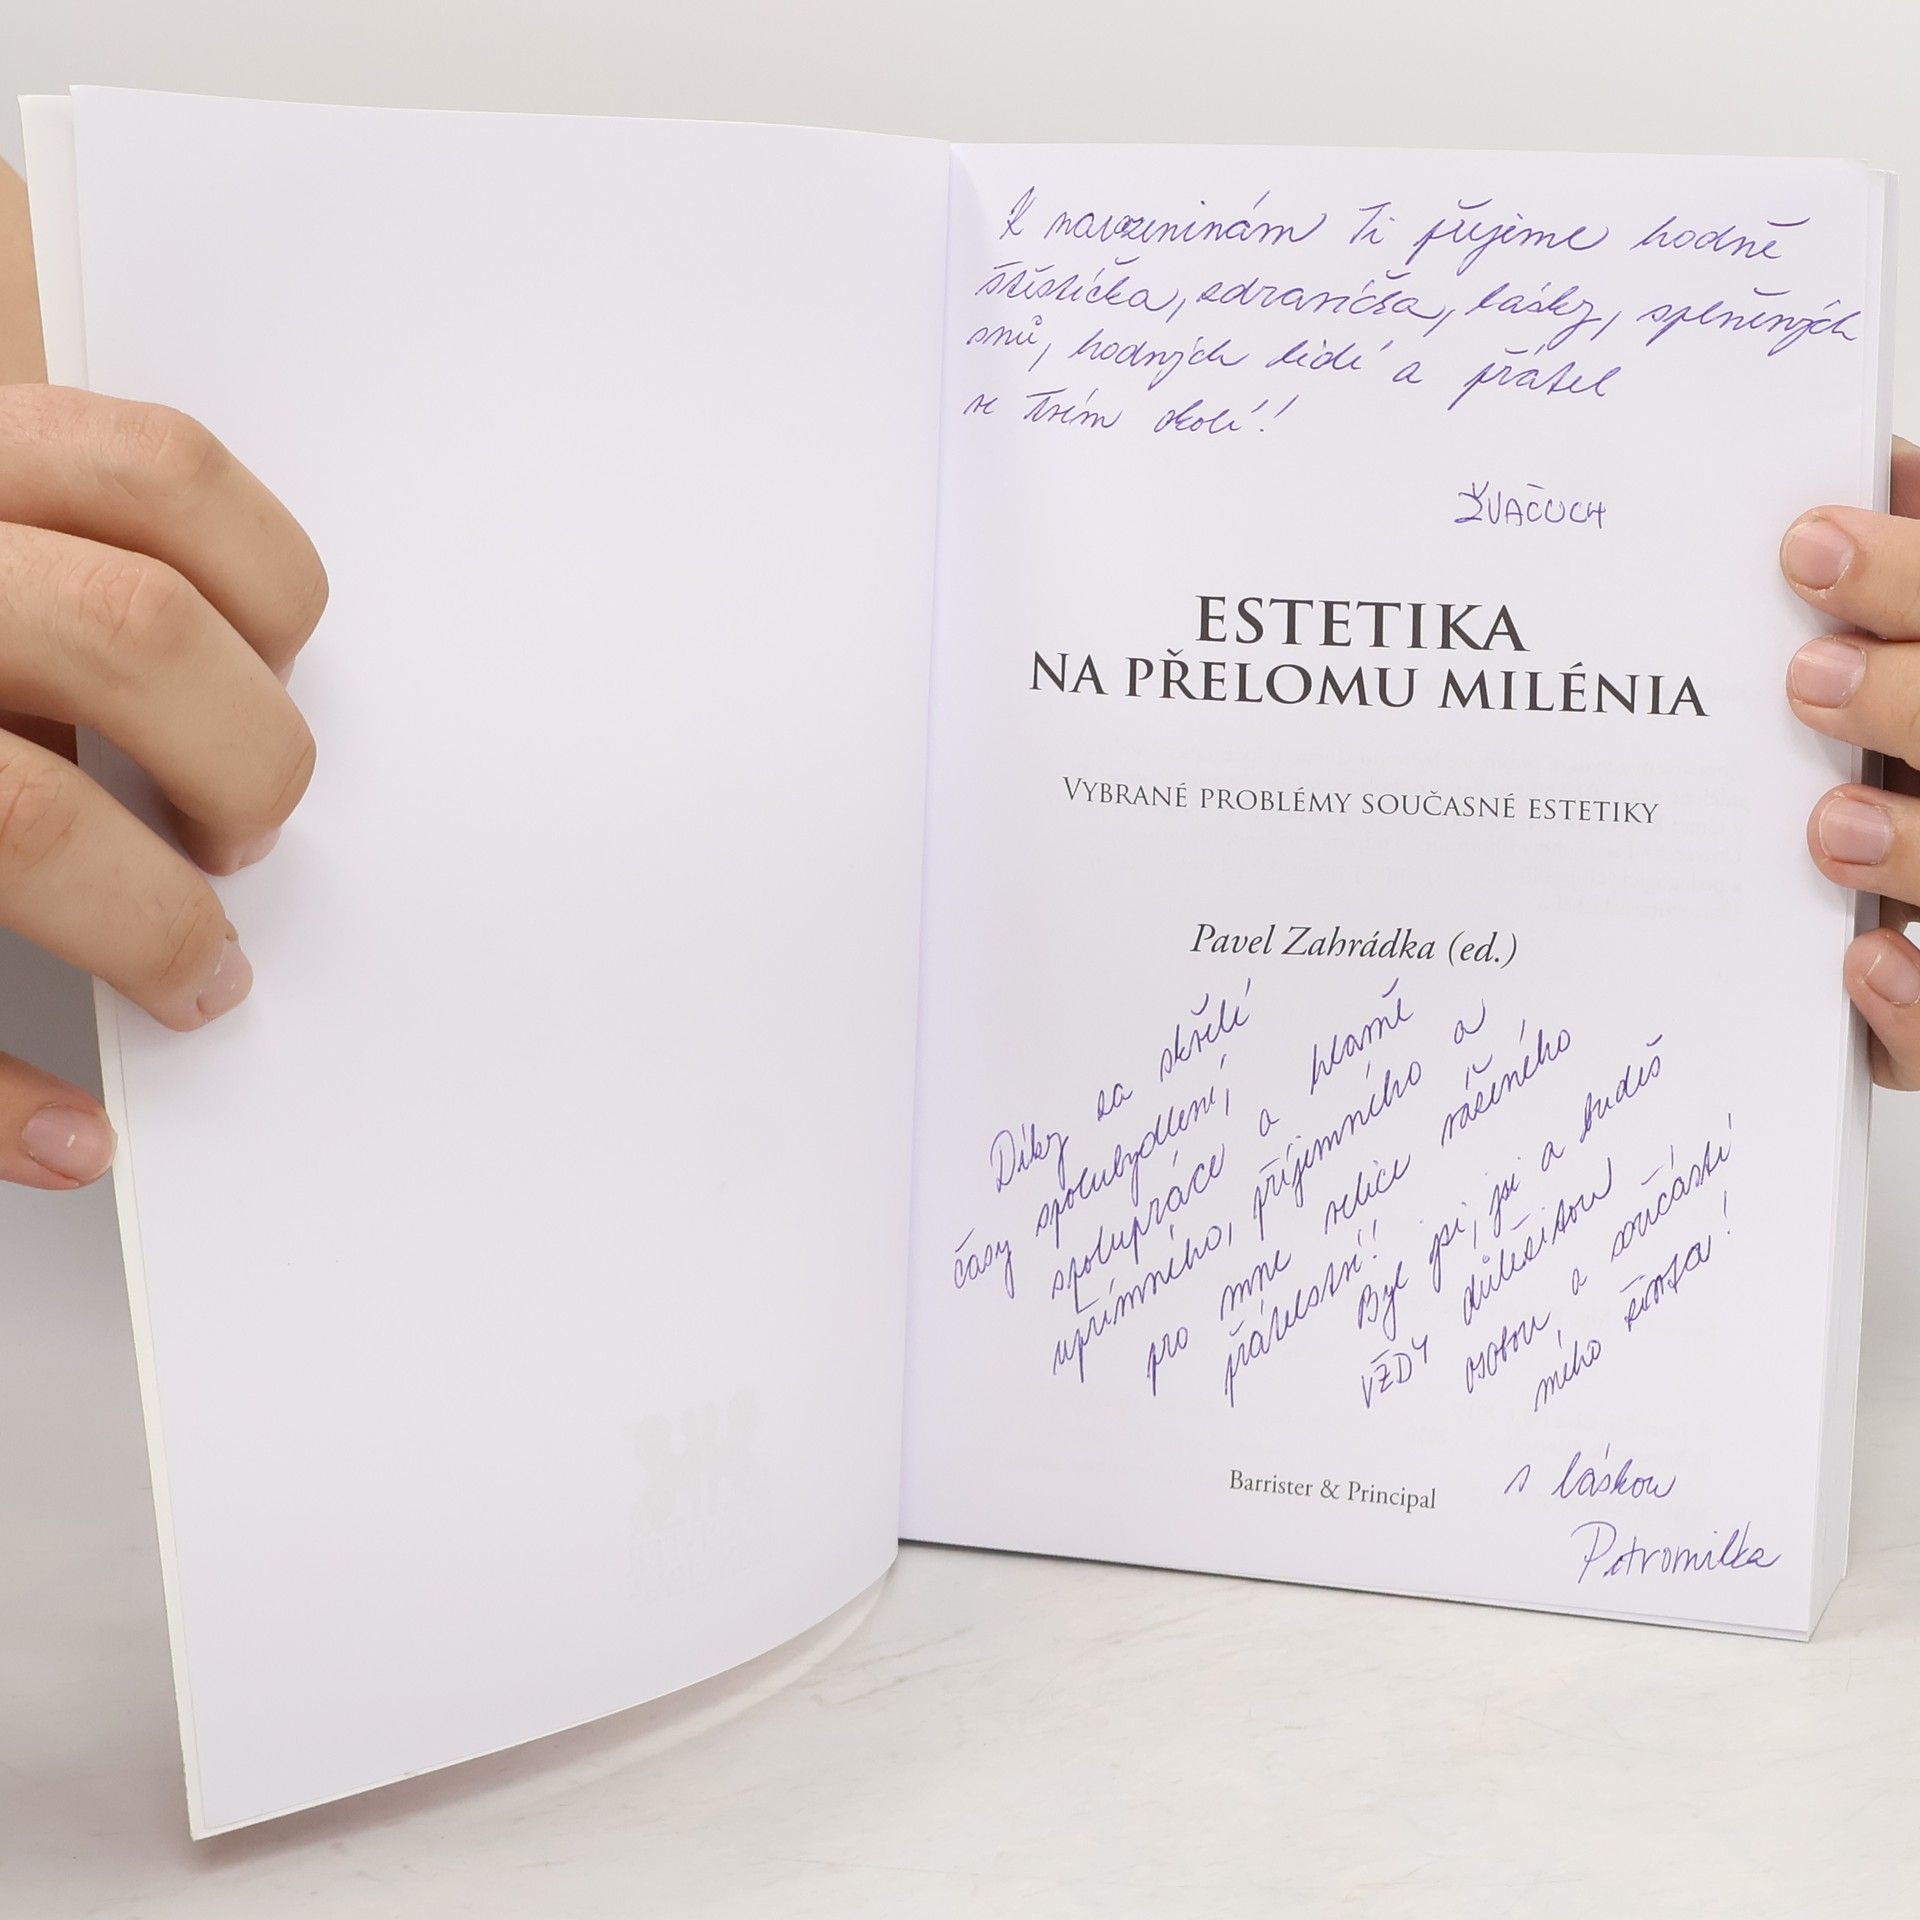 K narozeninám Ti přejeme hodně
štěstíčka, zdravíčka, lásky, splněných
snů, hodných lidí a přátel
ve Tvém okolí!
ŽVAČUCH
ESTETIKA
NA PŘELOMU MILÉNIA
VYBRANÉ PROBLÉMY SOUČASNÉ ESTETIKY
Pavel Zahrádka (ed.)
Díky za skvělé
časy spolubydlení,
spolupráce a hlavně
upřímného, příjemného a
pro mne velice váženého
přátelství! Byl jsi, jsi a budeš
VŽDY důležitou
osobou, a součástí
mého života!
Barrister & Principal
s láskou
Petromilka